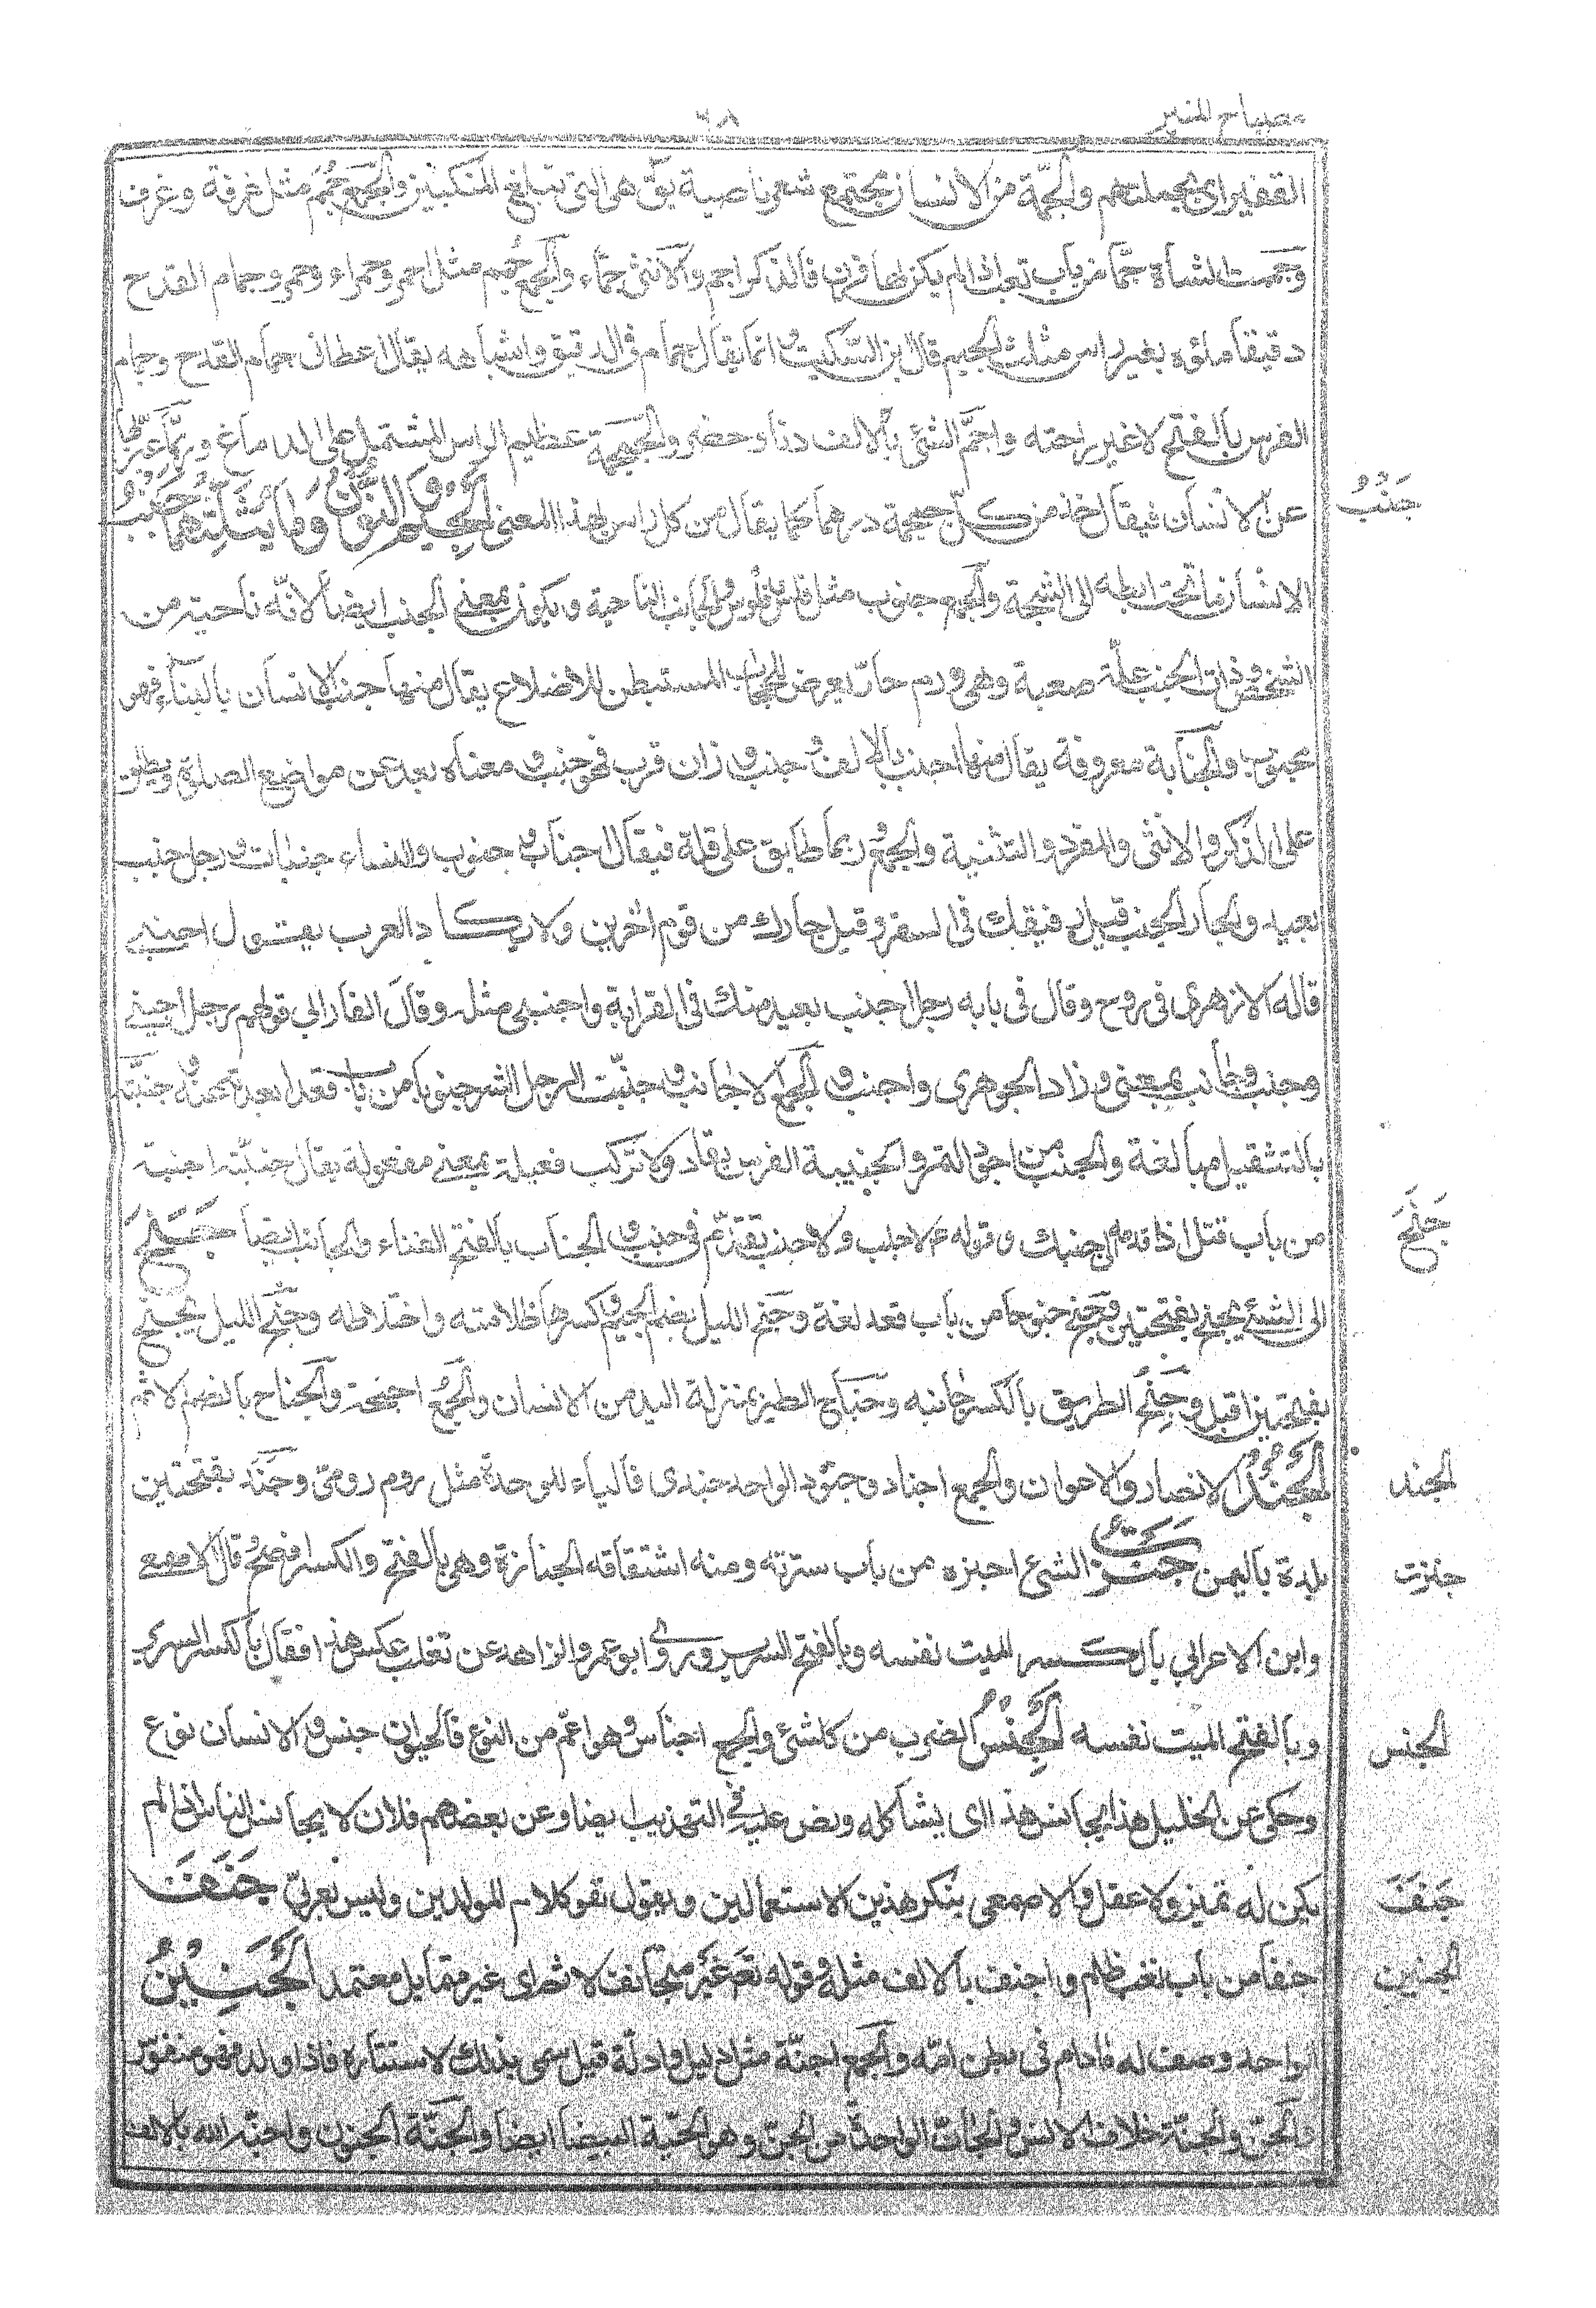 مصباح المنير
٦٨
الغفير اى بجملتهم والجمّة من الانسان مجتمع شعر ناصية يقّ هى التى تبلغ المنكبين والجمع جُمَم مثل غرفة وغرف
وجمّت الشاة جمّا من باب تعب اذا لم يكن لها قرن فالذكر اجم والانثى جمّاء والجمع جُم مثل احمر وحمراء وحمر وجمام القدح
دقيقا ملؤه بغير راس مثلث الجيم قال بن السّكيت انما يقال جمام فى الدقيق واشباهه يقال اعطانى جمام القدح وجمام
الفرس بالفتح لا غير راحته واجمّ الشئ بالالف دنا وحضر والجمجمة عظيم الراس المشتمل على الدماغ وربّما عبّر بها
عن الانسان فيقال خذ من كلّ جمجمة درهما كما يقال من كل راس بهذا المعنى الجيم والنون وما يثلثهما جنب
جنب
الانسان ما تحت ابطه الى الشجة والجمع جنوب مثل فلس وفلوس والجانب الناحية ويكون بمعنى الجنب ايضا لانّه ناحية من
الشخص وذات الجنب علّة صعبة وهى ورم حارّ يعرض للحجاب المستبطن للاضلاع يقال منها جنب الانسان بالبناء فهو
مجنوب والجنابة معروفة يقال منها اجنب بالالف وجنب وزان قرب فهو جنب ومعناه بعد عن مواضع الصلوة ويطلق
على الذكر والانثى والمفرد والتثنية والجمع وربما طابق على قلة فيقال اجناب و جنوب والنساء جنبات و رجل جنب
بعيد والجار الجنب قيل رفيقك فى السفر وقيل جارك من قوم اخرين ولا يكاد العرب يقول اجنبى
قاله الازهرى فى روح وقال فى بابه رجل اجنب بعيد منك فى القرابة واجنبى مثله وقال الفارابى قولهم رجل اجنبى
وجنب وجانب بمعنى وزاد الجوهرى واجنب والجمع الاجانب وجنّبت الرجل الشر جنوبا من باب قعد ابعدته عنه و جنّبته
بالتثقيل مبالغة والجنب من اجود التمر والجنيبة الفرس يقاد ولا تركب فعيلة بمعنى مفعولة يقال جنبته اجنبه
من باب قتل اذا قدته الى جنبك وقوله ع لا جلب ولا جنب تقدّم فى جنب والجناب بالفتح الفناء والجانب ايضا جَنَحَ
جَنَحَ
الى الشئ يجنح بفتحتين وجنح جنوحا من باب قعد لغة وجنح الليل بضم الجيم وكسرها ظلامته واختلاطه وجنح الليل يجنح
بفتحتين اقبل وجنح الطريق بالكسر جانبه وجناح الطير بمنزلة اليد من الانسان والجمع اجنحة والجناح بالضم الاثم
الجُنْدُ الانصار والاعوان والجمع اجناد وجنود الواحد جندى فالياء للوحدة مثل روم رومىّ وجَنَد بفتحتين
الجند
بلدة باليمن جنزت الشئ اجنزه من باب سترته ومنه اشتقاقه الجنازة وهى بالفتح والكسر افصح قال الاصمعى
جنزت
وابن الاعرابي بالكسر الميت نفسه وبالفتح السرير وروى ابو عمر والزاهد عن ثعلب عكس هذا فقال بالكسر السرير
وبالفتح الميت نفسه الجنس الضرب من كلشئ والجمع اجناس وهو اعمّ من النوع فالحيوان جنس والانسان نوع
الجنس
وحكى عن الخليل هذا يجانس هذا اى يشاكله ونص عليه فى التهذيب ايضا وعن بعضهم فلان لا يجانس الناس اذا لم
يكن له تميز ولا عقل والاصمعى ينكر هذين الاستعمالين ويقول هو كلام المولدين وليس بعربىّ جَنَفَ
جَنَفَ
جنفا من باب تعب ظلم واجنف بالالف مثله وقوله تعَ غير متجانف لاثم اى غير متمايل معتمد الجَنِيْنُ
الجنين
الواحد وصف له مادام فى بطن امّه والجمع اجنّة مثل دليل وادلّة قيل سمى بذلك لاستتاره فاذا ولد فهو منفوّس
والجنّ والجنّة خلاف الانس والجانّ الواحد من الجنّ وهو الحيّة البيضا ايضا والجنّة الجنون واجنّه الله بالالف